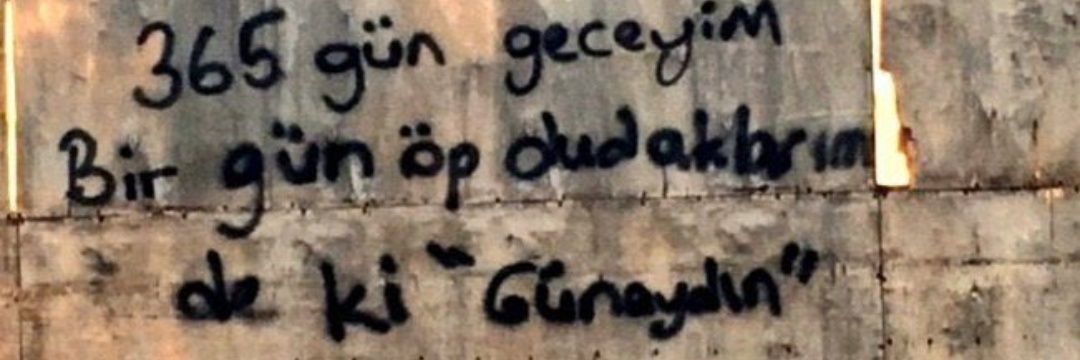 365 gün geceyim
Bir gün öp dudaklarım
de ki "Günaydın"